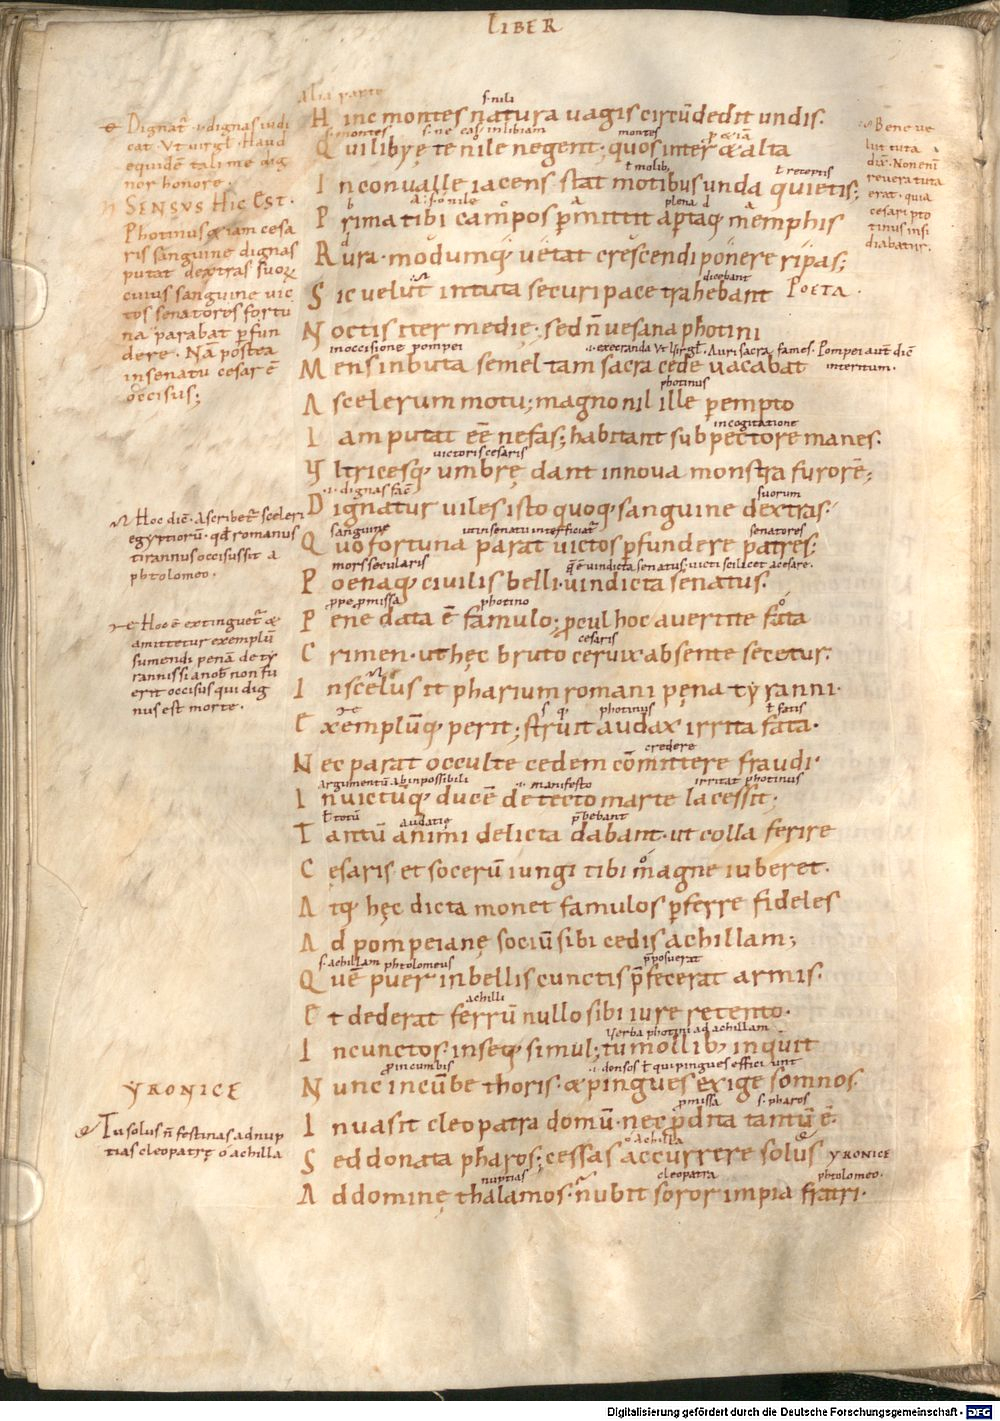 LIBER
Alia parte
H inc montes natura uagis circūdedit undis.
Q ui libyę te nile negent. quos inter & alta
I n conualle iacens stat motibus unda quietis;
P rima tibi campos p̄mittit aptaq; memphis
R ura. modumq; uetat crescendi ponere ripas;
S ic velut in tuta securi pace trahebant POETA.
N octis iter medię. sed n̄ uesana photini
M ens inbuta semel tam sacra cede uacabat
A scelerum motu; magno nil ille pempto
I am putat eē nefas; habitant sub pectore manes.
V ltricesq; umbrę dant in nova monstra furorē;
D ignatur uiles isto quoq; sanguine dextras.
Q uo fortuna parat uictos pfundere patres;
P oenaq; ciuilis belli. uindicta senatus.
P ene data ē famulo; procul hoc auertite fata
C rimen. ut hęc bruto ceruix absente secetur.
I n scelus it pharium romani pęna tyranni.
E xemplūq; perit; struit audax irrita fata.
N ec parat occulte cedem cōmittere fraudi.
I nuictūq; ducē detecto marte lacessit.
T antū animi delicta dabant. ut colla ferire
C ęsaris. et socerū iungi tibi magne iuberet.
A tq; hęc dicta monet famulos pferre fideles
A d pompeianę sociū sibi cedis achillam;
Q uē puer inbellis cunctis p̄fecerat armis.
E t dederat ferrū nullo sibi iure retento.
I n cunctos. in seq; simul; tu mollib; inquit
N unc incūbe thoris. & pingues exige somnos.
I nuasit cleopatra domū. nec prodita tantū ē.
S ed donata pharos; cessas accurrere solus YRONICE
A d dominę thalamos. nubit soror impia fratri.
Dignat̄ .i. dignas iudi
cat. Vt uirgł. Haud
equidē tali me dig
nor honore.
SENSVS HIC EST.
Photinus & iam cesa
ris sanguine dignas
putat dextras suoꝝ
cuius sanguine uic
tos senatores fortu
na parabat pfun
dere. Nā postea
in senatu cesar ē
occisus;
Hoc diē. Ascribet̄ sceleri
egyptiorū. qđ romanus
tirannus occisus sit a
phtolomeo.
Hoc ē extinguet̄ &
amittetur exemplū
sumendi penā de ty
rannis si a nob̄ non fu
erit occisus qui dig
nus est morte.
YRONICE
Tu solus n̄ festinas ad nup
tias cleopatrę o achilla
Bene ue
lut tuta
diē. Non enī
reuera tuta
erat. quia
cesari pto
tinus insi
diabatur.
s. nili
s. montes
in libiam
montes
ł molib;
ł receptis
plena
dicebant
in occisione pompei
.i. execranda Vt Virgł. Auri sacra fames. Pompei aut̄ diē
interitum.
photinus
in cogitatione
victoris cesaris
.i. dignas facit
suorum
sanguine
ut in senatu interficiat̄
senatores
mors secularis
quę ē vindicta senatus. victi scilicet a cesare.
ppe pmissa
photino
cesaris
photinus
ł fatis
credere
argumentū ab inpossibili
.i. manifesto
irritat photinus
ł totū
audacię
p̄bebant
s. achillam
phtolomeus
p̄posuerat
achilli
Verba photini ad achillam
pincumbis
.i. densos ł qui pingues effici unt
pmissa
s. pharos
o achilla
nuptias
cleopatra
phtolomeo.
Digitalisierung gefördert durch die Deutsche Forschungsgemeinschaft - DFG